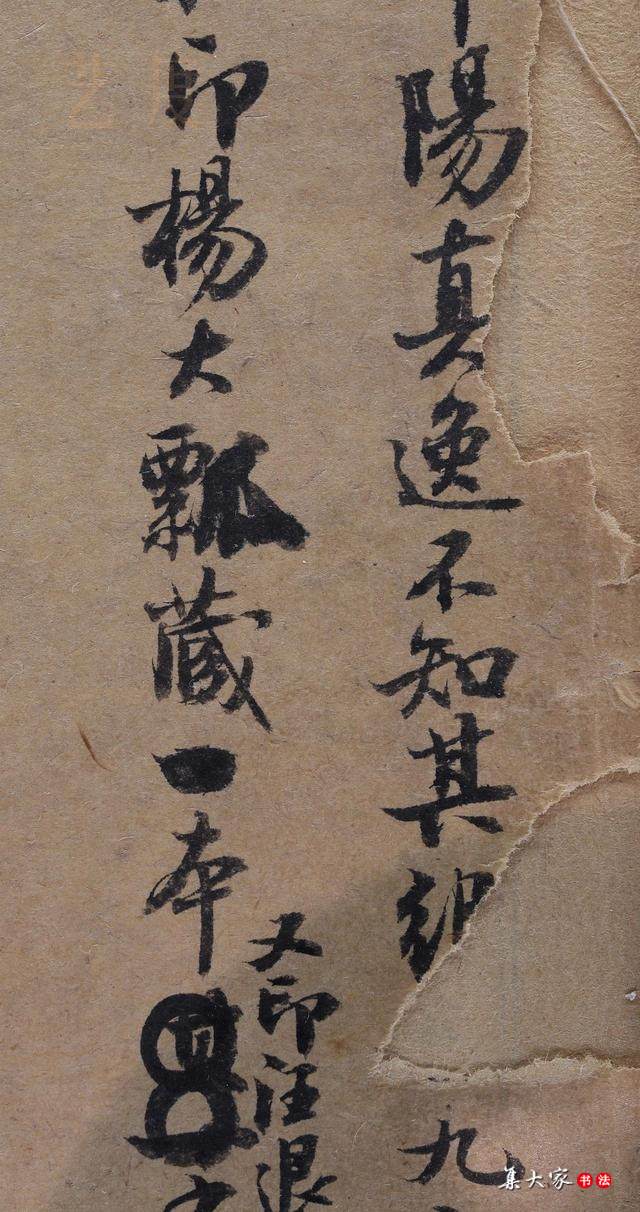 陽真逸不知其
九
印楊大瓢藏一本
又印汪退
集大家书法